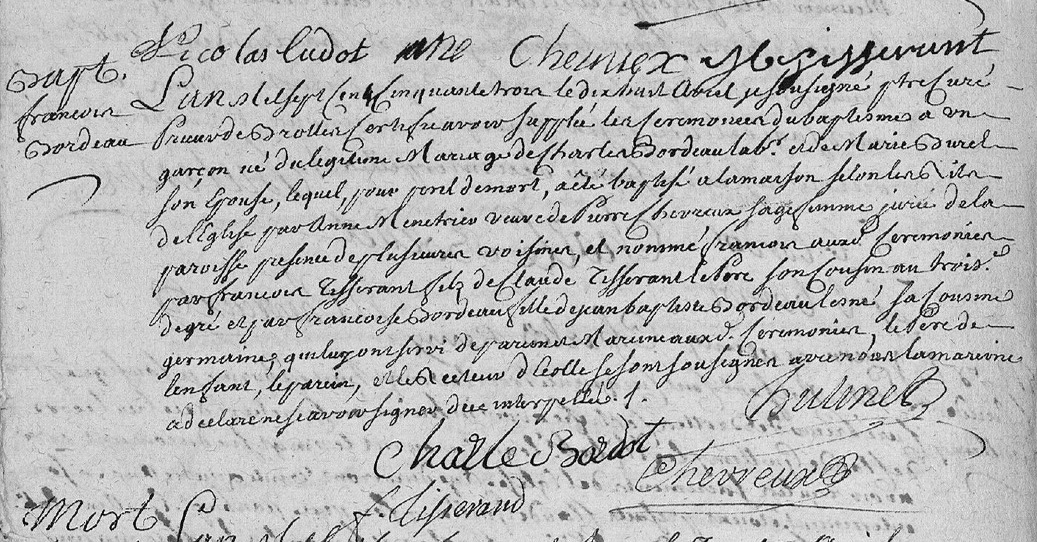 Nicolas Cudot Chevreux
Bapt. L'an Mil sept Cent Cinquante trois le dix huit Avril je sousigné ptre Curé
françois Prieur de Certifie avoir supplée les Ceremonies du baptesme a un
Bordeau garçon né du legitime Mariage de Charles Bordeau lab.r et de Marie Burel
son Epouse, lequel, pour peril de mort, a été baptisé a la maison selon les Rits
de l'Eglise par Anne Menetrier veuve de Pierre Chevreux sage femme jurée de la
paroisse presence de plusieures voisines, et nommé francois aux d. Ceremonies
par francois Tisserant fils de Claude Tisserant le Pere son Cousin au trois.e
degré et par francoise Bordeau fille de jean baptiste Bordeau l'einé sa Cousine
germaine, qui luy ont servi de parein et Mareine aux d. Ceremonies, le Pére de
l'enfant, le parein, et le Recteur d'Ecolle se sont sousignés avec nous la mareine
a declaré ne scavoir signer de ce interpellée . / .
Charle Bordot
Chevreux
f. Tisserand
Mort L'an